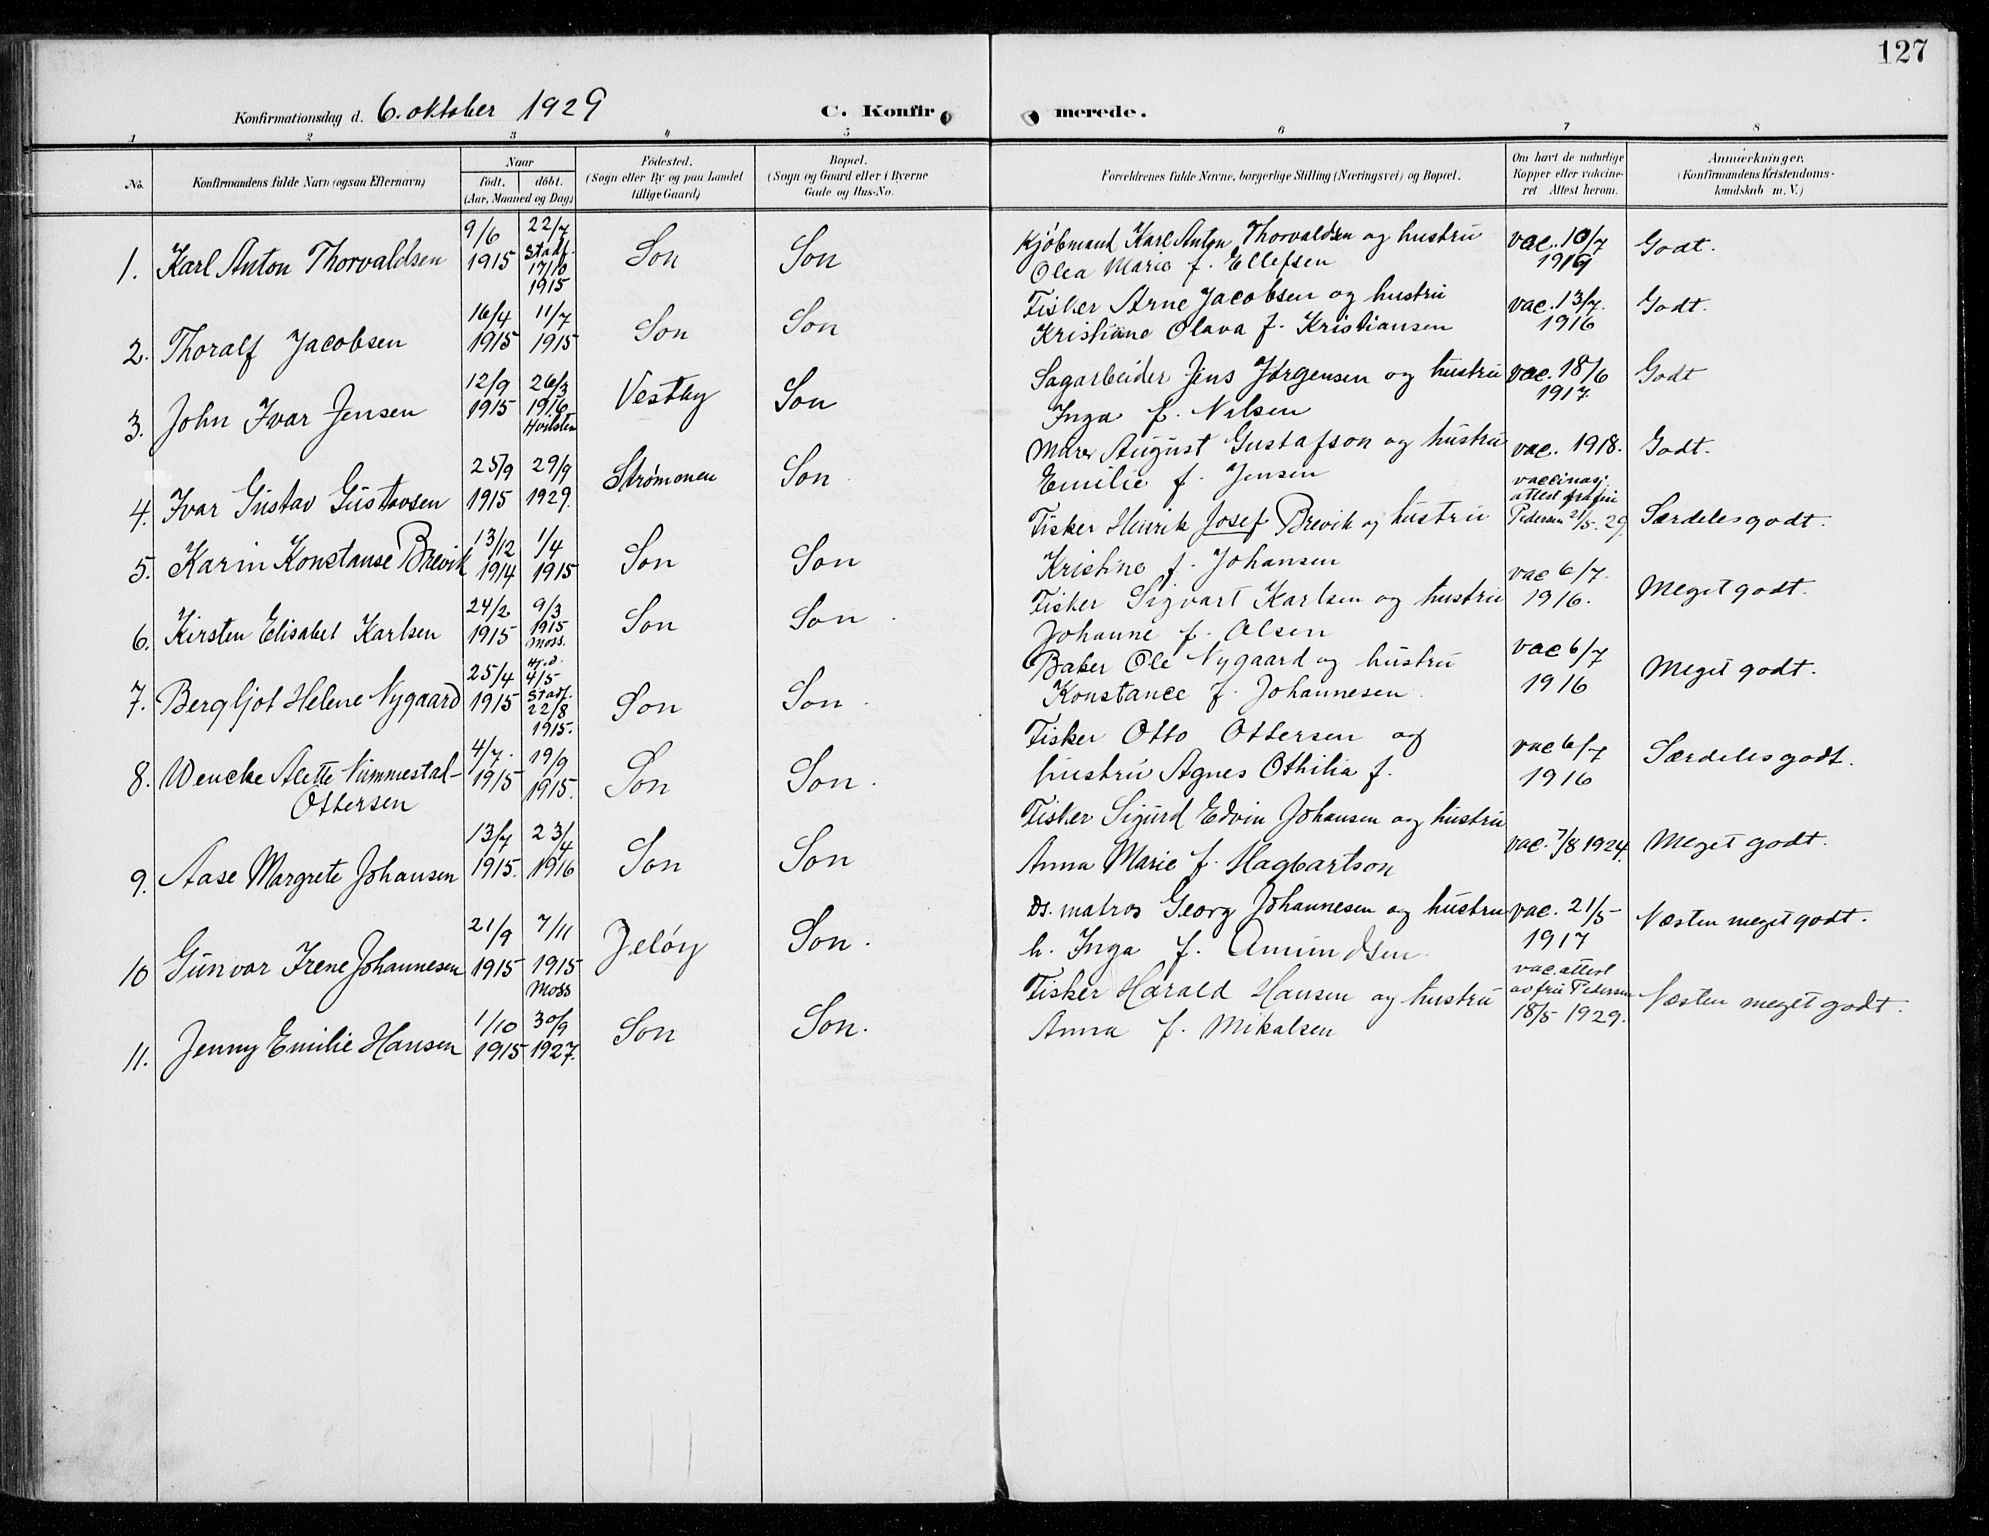 127
Konfirmationsdag d. 6. oktober 1929 C. Konfir merede.
1 2 3 4 5 6 7 8
No. Konfirmandens fulde Navn (ogsaa Efternavn) Naar født. døbt. (Aar, Maaned og Dag) Fødested. (Sogn eller By og paa Landet tillige Gaard) Bopæl. (Sogn og Gaard eller i Byerne Gade og Hus-No. Forældrenes fulde Navne, borgerlige Stilling (Næringsvei) og Bopæl. Om havt de naturlige Kopper eller vakcineret Attest herom. Anmerkninger. (Konfirmandens Kristendomskundskab m. V.)
1. Karl Anton Thorvaldsen 9/6 1915 22/7 Stadf. 17/10 1915 Son Son Kjøbmand Karl Anton Thorvaldsen og hustru Olea Marie f. Ellefsen vac. 10/7 1916 Godt.
2. Thoralf Jacobsen 16/4 1915 11/7 1915 Son Son Fisker Arne Jacobsen og hustru Kristiane Olava f. Kristiansen vac. 13/7. 1916 Godt.
3. John Ivar Jensen 12/9 1915 26/3 1916 Hvitsten Vestby Son Sagarbeider Jens Jørgensen og hustru Inga f. Nilsen vac. 18/6 1917. Godt
4. Ivar Gustav Gustavsen 25/9 1915 29/9 1929. Strømonen Son August Gustafson og hustru Emilie f. Jensen vac. 1918. Godt.
5. Karin Konstanse Brevik 13/12 1914 1/4 1915 Son Son Fisker Henrik Josef Brevik og hustru Kristine f. Johansen attest fra fru Pedersen 21/5. 29. Særdeles godt.
6. Kirsten Elisabet Karlsen 24/2 1915 9/3 1915 Moss. Son Son. Fisker Sigvart Karlsen og hustru Johanne f. Olsen vac 6/7. 1916. Meget godt.
7. Bergljot Helene Nygaard 25/4 1915 Hj.d. 4/5 Stadf. 22/8 1915. Son Son. Baker Ole Nygaard og hustru Konstance f. Johannesen. vac 6/7 1916 Meget godt.
8. Wencke Alette Nummestal-Ottersen 4/7. 1915 19/9 1915. Son Son. Fisker Otto Ottersen og hustru Agnes Othilia f. vac 6/7 1916 Særdeles godt.
9. Aase Margrete Johansen 13/7 1915. 23/4 1916 Son Son Fisker Sigurd Edvin Johansen og hustru Anna Marie f. Hagbartson vac. 7/8 1924. Meget godt.
10 Gunvor Irene Johannesen 21/9 1915 7/11 1915 Moss Jeløy Son. Ds. matros Georg Johannesen og hustru h. Inga f. Amundsen. vac. 21/5 1917 Næsten meget godt.
11. Jenny Emilie Hansen 1/10 1915 30/9 1927. Son Son. Fisker Harald Hansen og hustru Anna f. Mikalsen vac. attest av fru Pedersen 18/5 1929. Næsten meget godt.